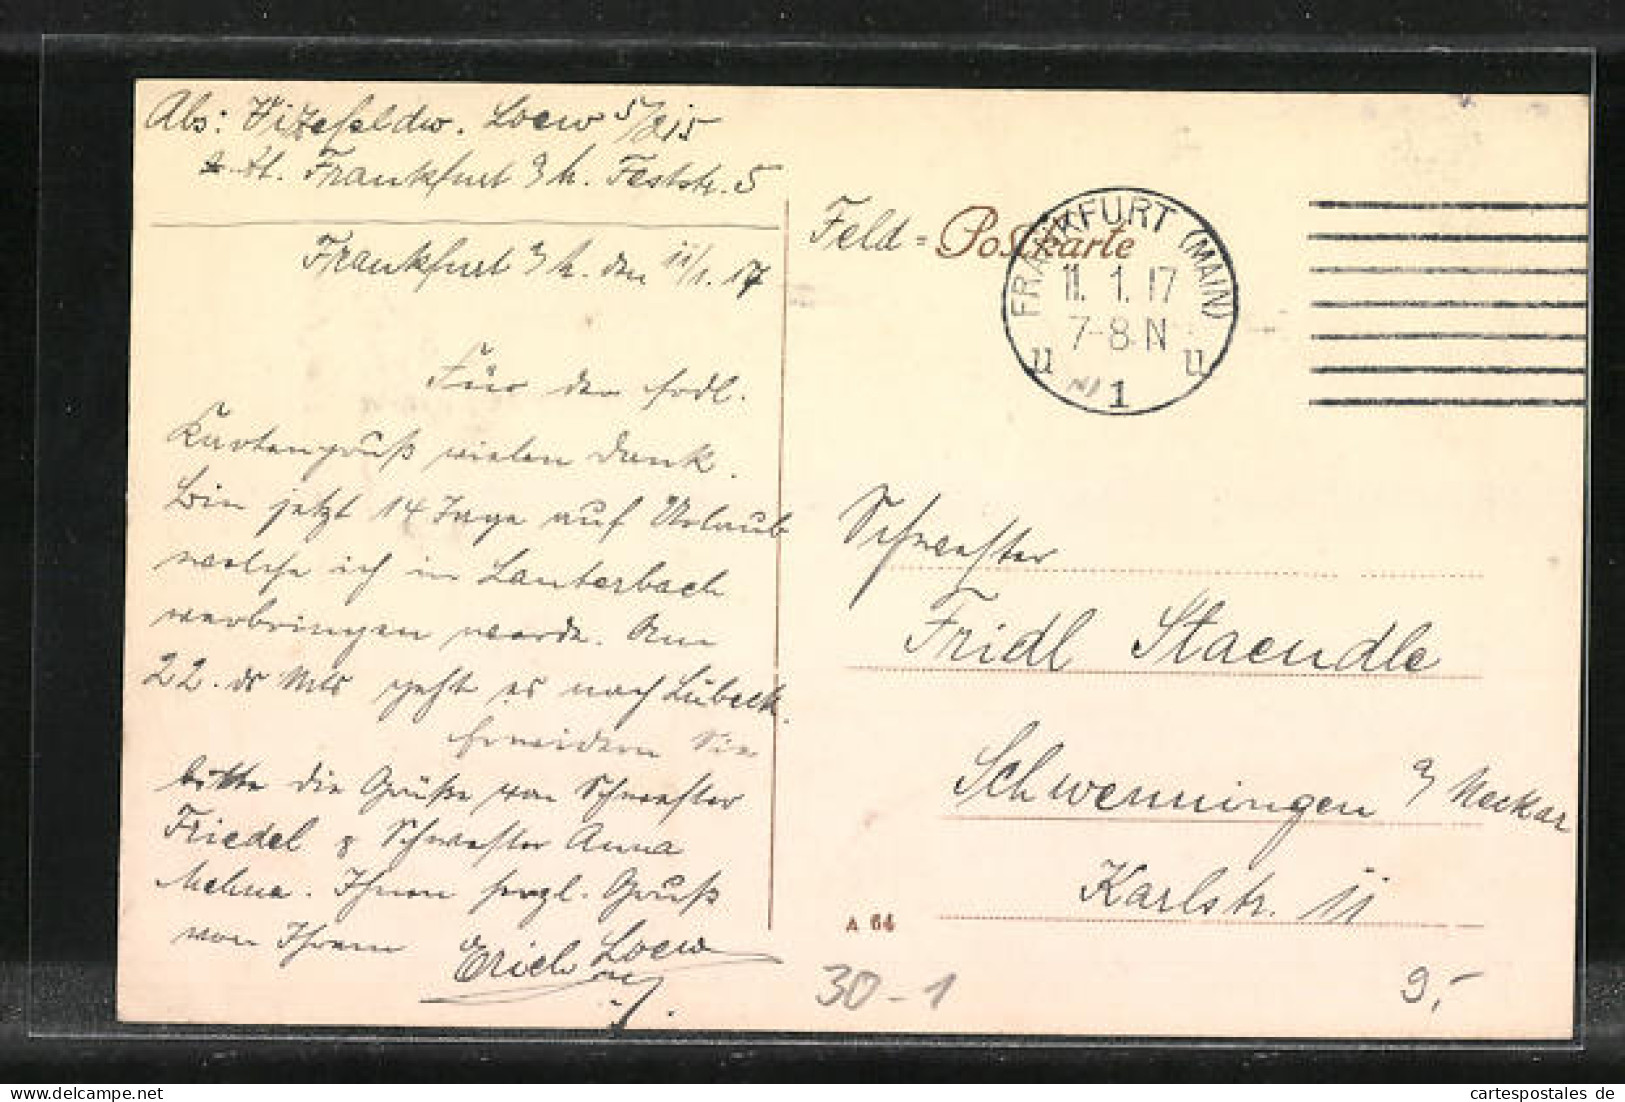 Abs: Vizefeldw. Loew 5/
z. Zt. Frankfurt a/M. Feststr. 5
Frankfurt a/M. den 11/1. 17
Für den frdl.
Kartengruß vielen Dank.
Bin jetzt 14 Tage auf Urlaub
welche ich in Lauterbach
verbringen werde. Am
22. ds Mts geht es nach Lübeck.
Erwidern Sie
bitte die Grüße von Schwester
Friedel & Schwester Anna
Ihnen herzl. Gruß
von Ihrem
Erich Loew
Feld = Postkarte
FRANKFURT (MAIN)
11. 1. 17
7-8 N
u u
1
Schwester
Fridl Staendle
Schwenningen a/Neckar
Karlstr. 11
A 64
30-1
9,-
cartespostales de